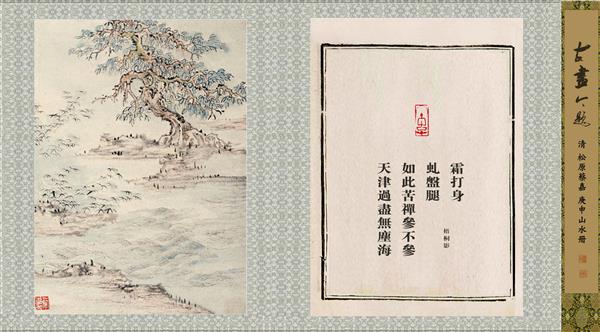 古畫今題
清 松原蔡嘉 庚申山水冊
霜打身
虬盤腿
如此苦禪參不參
天津過盡無塵海
梧桐影